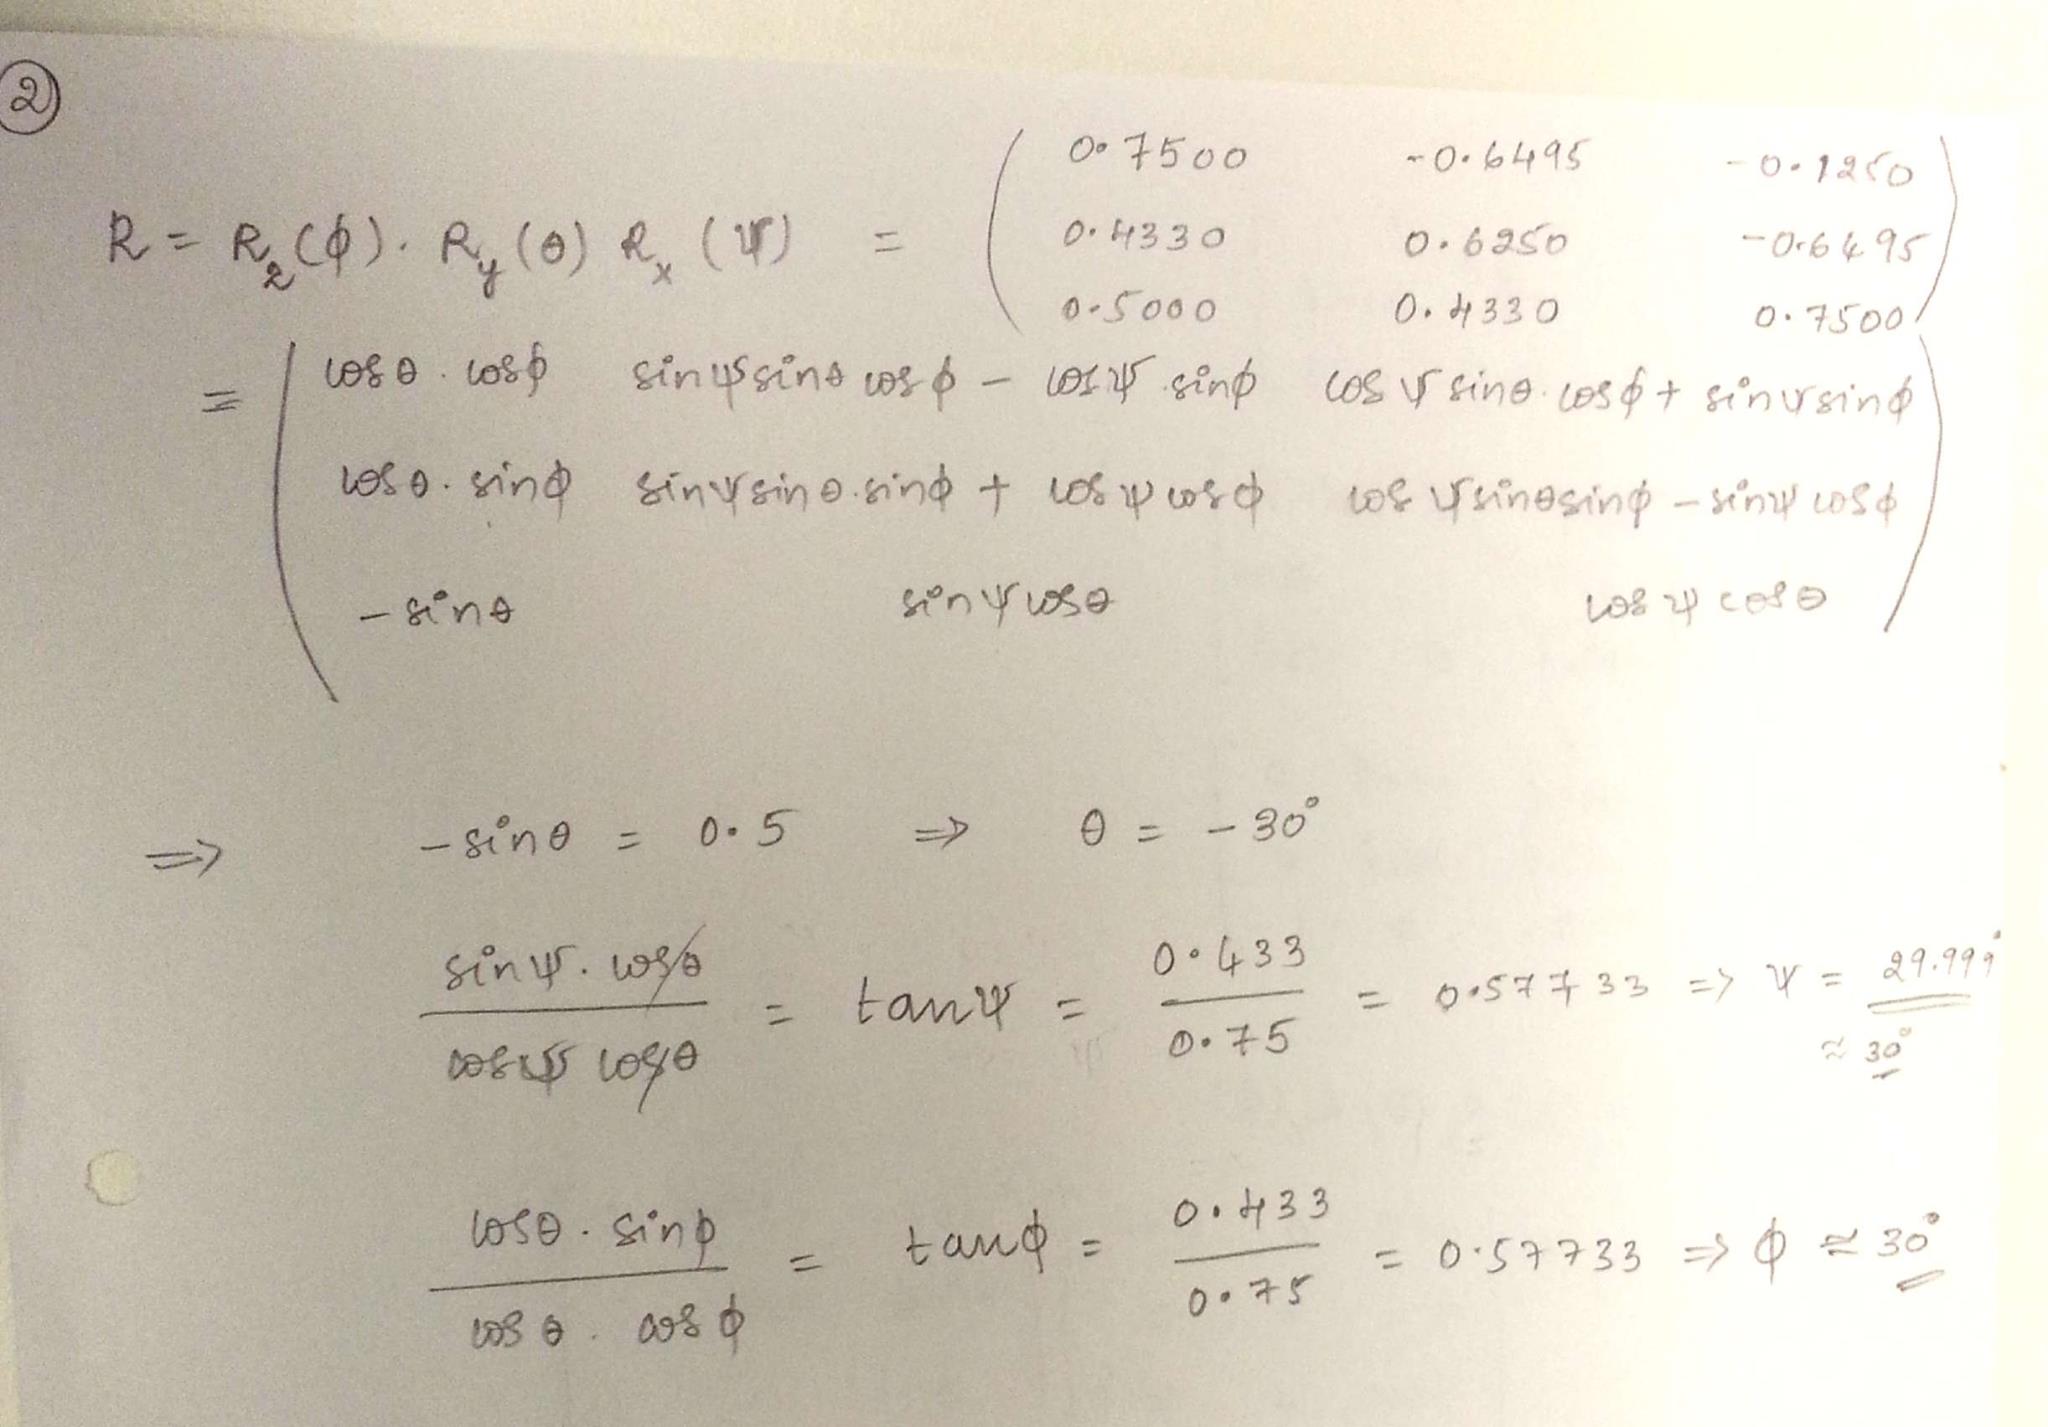 ②
0.7500 -0.6495 -0.1250
R = R_z(ϕ). R_y(θ) R_x(ψ) = 0.4330 0.6250 -0.6495
0.5000 0.4330 0.7500
= cosθ . cosϕ sinψsinθ cosϕ - cosψ.sinϕ cosψsinθ.cosϕ + sinψsinϕ
cosθ. sinϕ sinψsinθ.sinϕ + cosψcosϕ cosψsinθsinϕ - sinψcosϕ
-sinθ sinψcosθ cosψcosθ
⇒ -sinθ = 0.5 ⇒ θ = -30°
sinψ. cosθ / cosψ cosθ = tanψ = 0.433 / 0.75 = 0.57733 ⇒ ψ = 29.999°
≈ 30°
cosθ. sinϕ / cosθ. cosϕ = tanϕ = 0.433 / 0.75 = 0.57733 ⇒ ϕ ≈ 30°